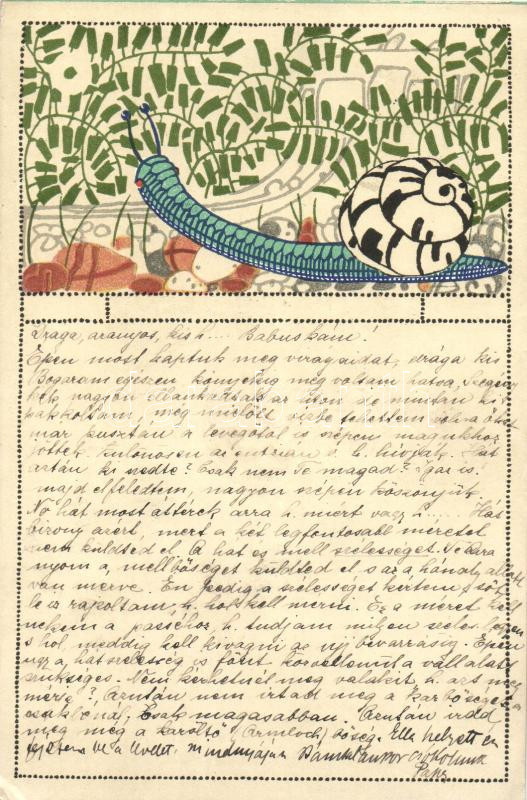 Draga, aranyos, kis h.... Babuskám!
Épen most kaptuk meg viragaidat, drága kis
Bogaram egészen könyekig meg voltam hatva, Szegény
kék nagyon ellankadtak az úton de miután ki
pakkoltam, még mielőtt vizbe tehettem volna őket
már pusztán a levegőtől is szépen magukhoz
jöttek, különösen az entzian v. h. hivják. Hát
aztán ki szedte? Csak nem Te magad? Igaz is!
majd elfeledtem, nagyon szépen köszönjük.
No hát most attérek arra h. mert vagy h.... Hát
bizony azért, mert a két legfontosabb méretet
nem küldted el. A hat es mell szelességet. Te
nyom a, mellbőséget küldted el s az a hónalj alatt
van merve. Én pedig a szélességet kértem, sőt
le is rajzoltam, h. hol kell merni. Ez a meret kell
nekem a h. tudjam milyen szeles legyen
s hol, meddig kell kivagni az ujj bevarrásig. Épen
ugy a hatszelesség is főkép a vállalatz
szükséges. Nem kérhetnél meg valakit, h. azt meg
mérje? Azutan nem irtad meg a karbőséget
csak magasabban. Azutan irdd
meg még a karöltő (Armloch) bőség. Ella helyett én
be a levelet. mindnyájan csokolunk